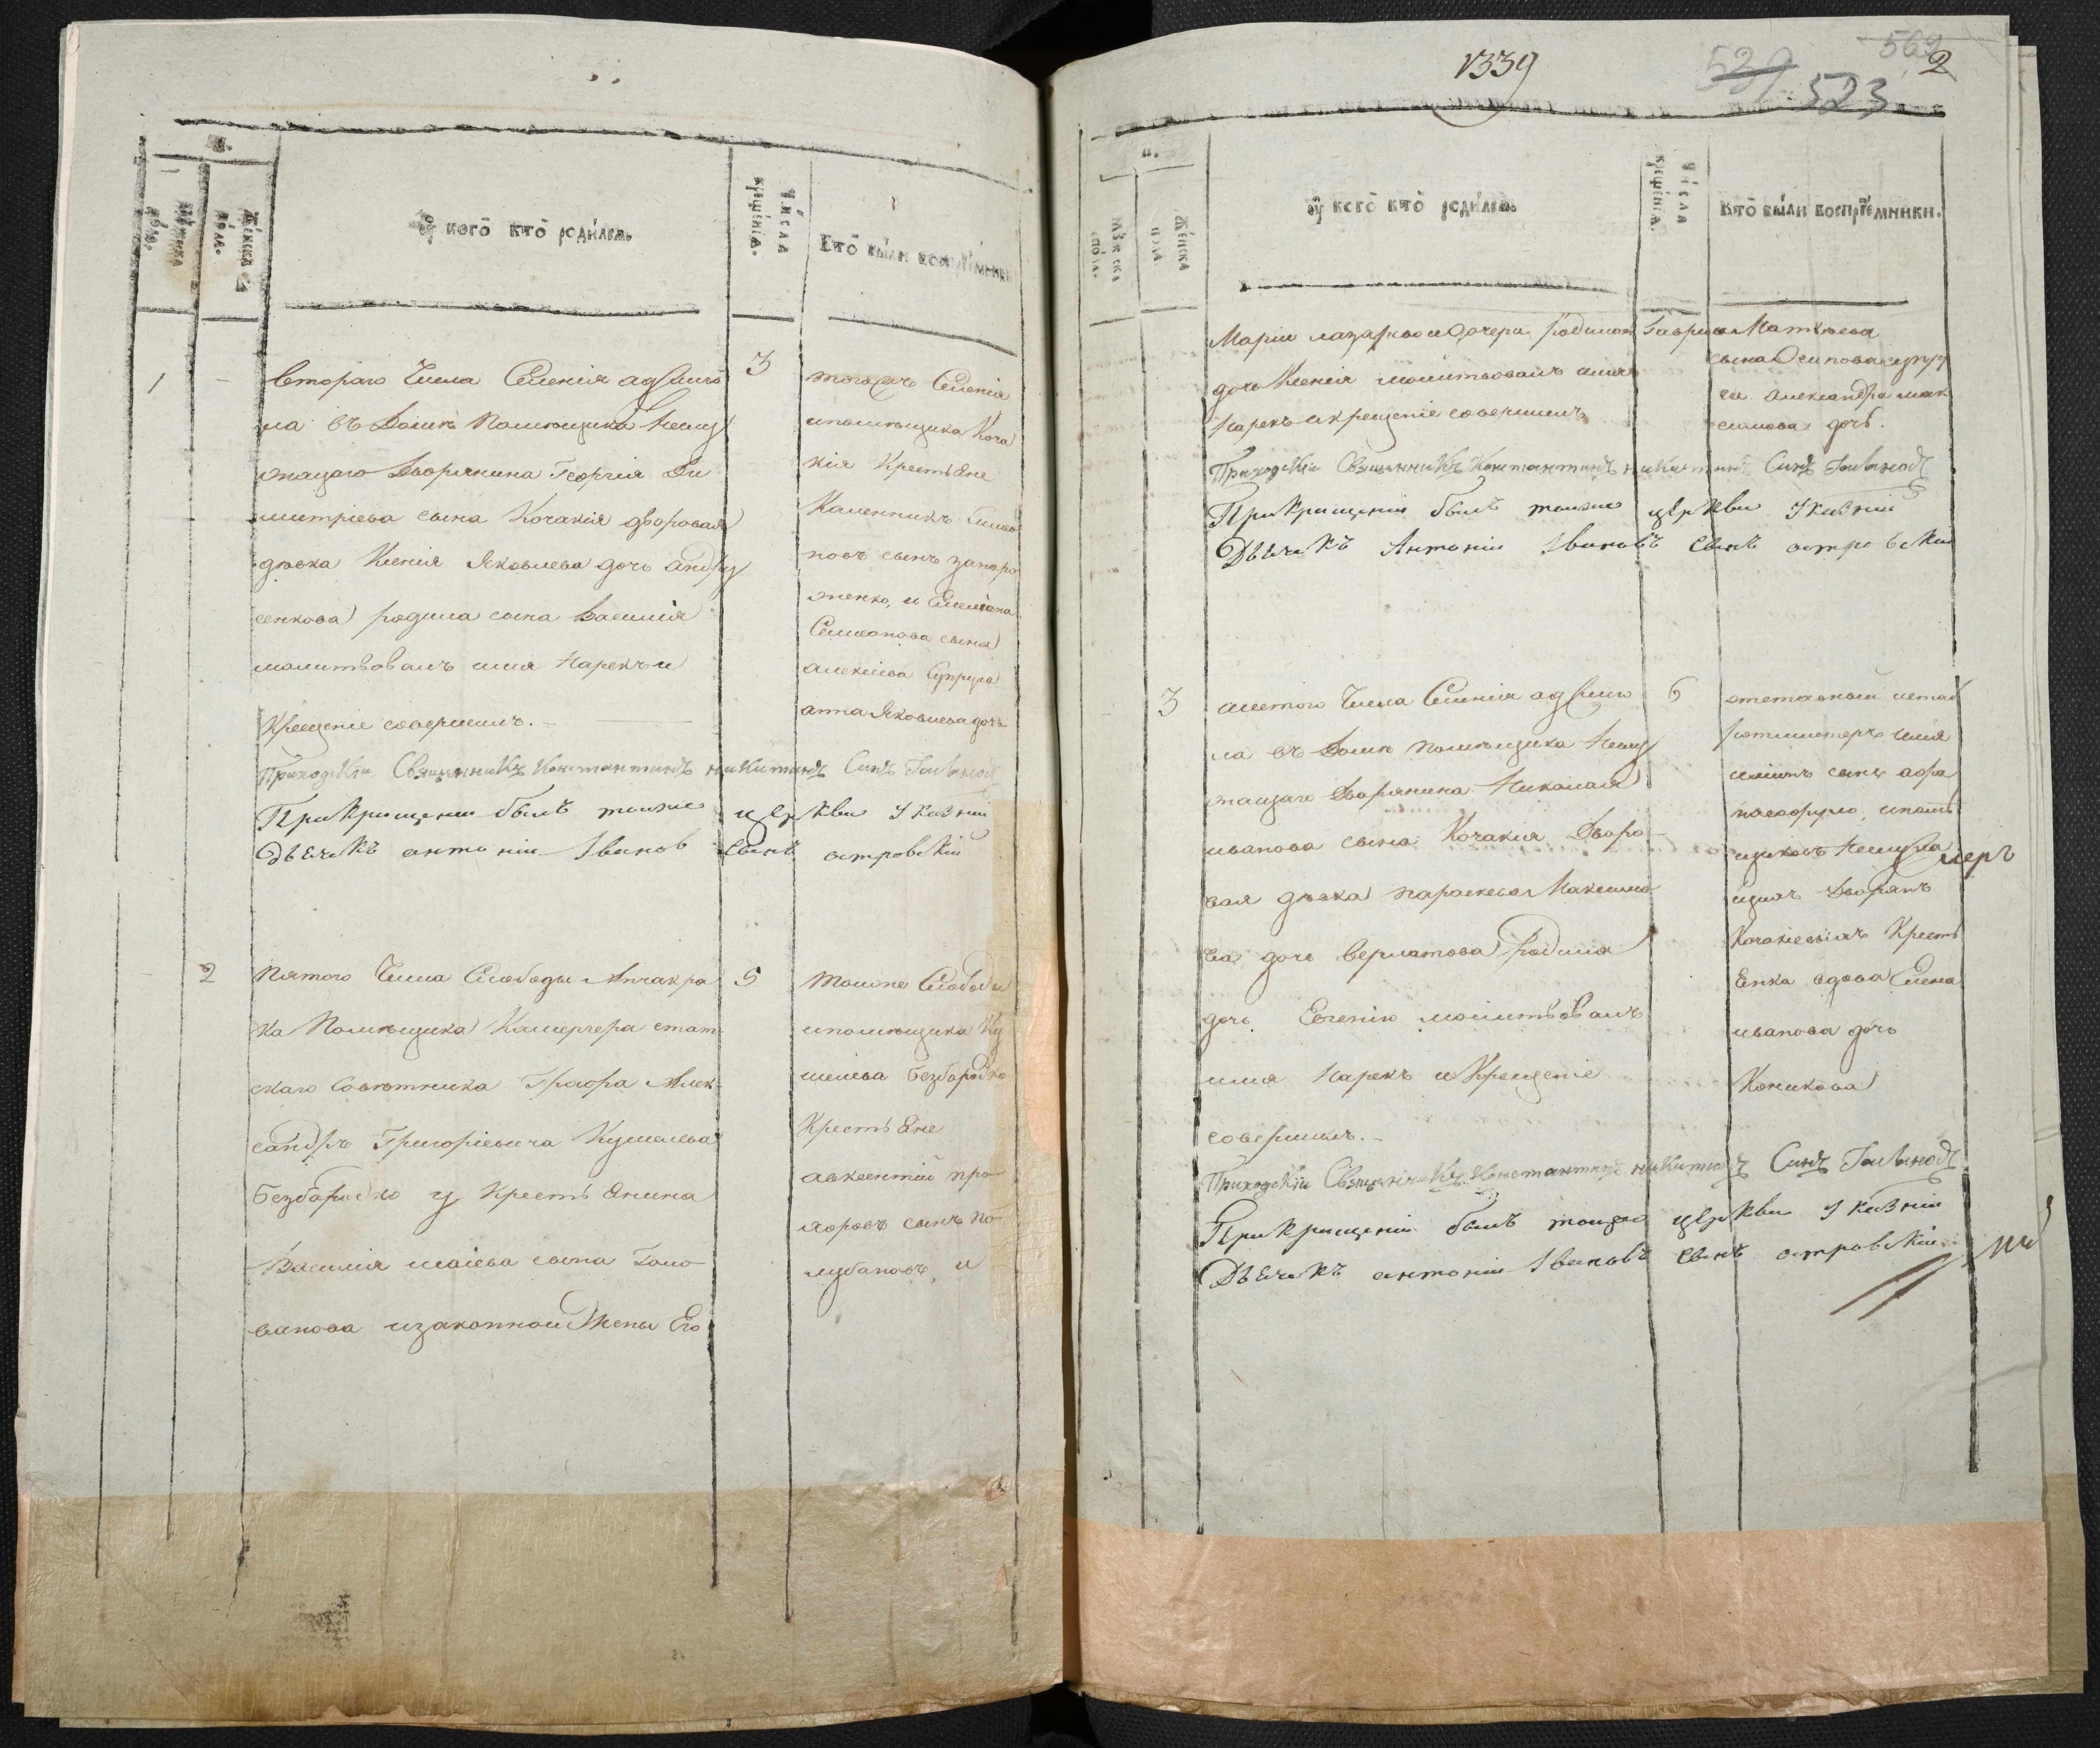 Мужеска пола.
Женска пола.
Ѹ когѡ ктѡ родилсѧ.
Числа крещенїѧ.
Ктѡ были воспрїемники
1
Втораго Числа Селенія аджиго
ла въ Домѣ Помѣщика Нежу
жащаго Дворянина Георгія Ди
митріева сына Кочакія дворовая
дѣвка Ксенія Яковлева дочь
сенкова родила сына Василія
молитвовалъ имя Нарекъ и
Крещеніе совершилъ.
3
тогожъ Селенія
ипомѣщика Коча
кія Крестьяне
Каленникъ
новъ сынъ запоро
женко, и
сына
алексіева Супруга
анна Яковлева дочь
Приходскій Священникъ Константинъ Никитинъ Синъ
При Крищении былъ тоиже церкви Указній
Дьячекъ антоній Іванов синъ островскій
2
Пятого Числа Слободы Анчакра
ка Помѣщика Камергера стат
скаго Совѣтника Графа Алек
сандръ Григоріевича Кушелева
Безбородко у Крестьянина
Василія исаіева сына Голо
ванова изаконной Жены Его
5
тоиже Слободы
ипомѣщика Ку
шелева Безбородко
Крестьяне
авксентій про
новъ сынъ по
лубановъ, и
1339
529
569
2
523
Мужеска пола.
Женска пола.
Ѹ когѡ ктѡ родилсѧ.
Числа крещенїѧ.
Ктѡ были воспрїемники.
Маріи лазаревои дочери родилась
дочь Ксенія молитвовалъ имя
Нарекъ икрещеніе совершилъ
Гаврила Матвѣева
сына Осипова супру
га александра мак
симова дочь.
Приходскій Священникъ Константинъ Никитинъ Синъ
При Крищеніи былъ тоиже церкви Указній
Дьячекъ Антоній Івановъ синъ островскій
3
шестого Числа Селенія аджиго
ла въ Домѣ помѣщика Нежу
жащаго Дворянина Николая
иванова сына Кочакія Дворо
вая дѣвка параскева Максимо
ва дочь верлатова родила
дочь Евгенію молитвовалъ
имя Нарекъ и Крещеніе
совершилъ.
6
отставный штаб
ротмистеръ илія
сынъ афа
, ипомѣ
щиковъ
щихъ Дворянъ
Кочакіевыхъ Кресть
Енка вдова Елена
иванова дочь
Коникова
Приходскій Священникъ Константинъ Никитинъ Синъ
При Крищеніи былъ тоиже церкви Указній
Дьячекъ антоній Івановъ синъ островскій